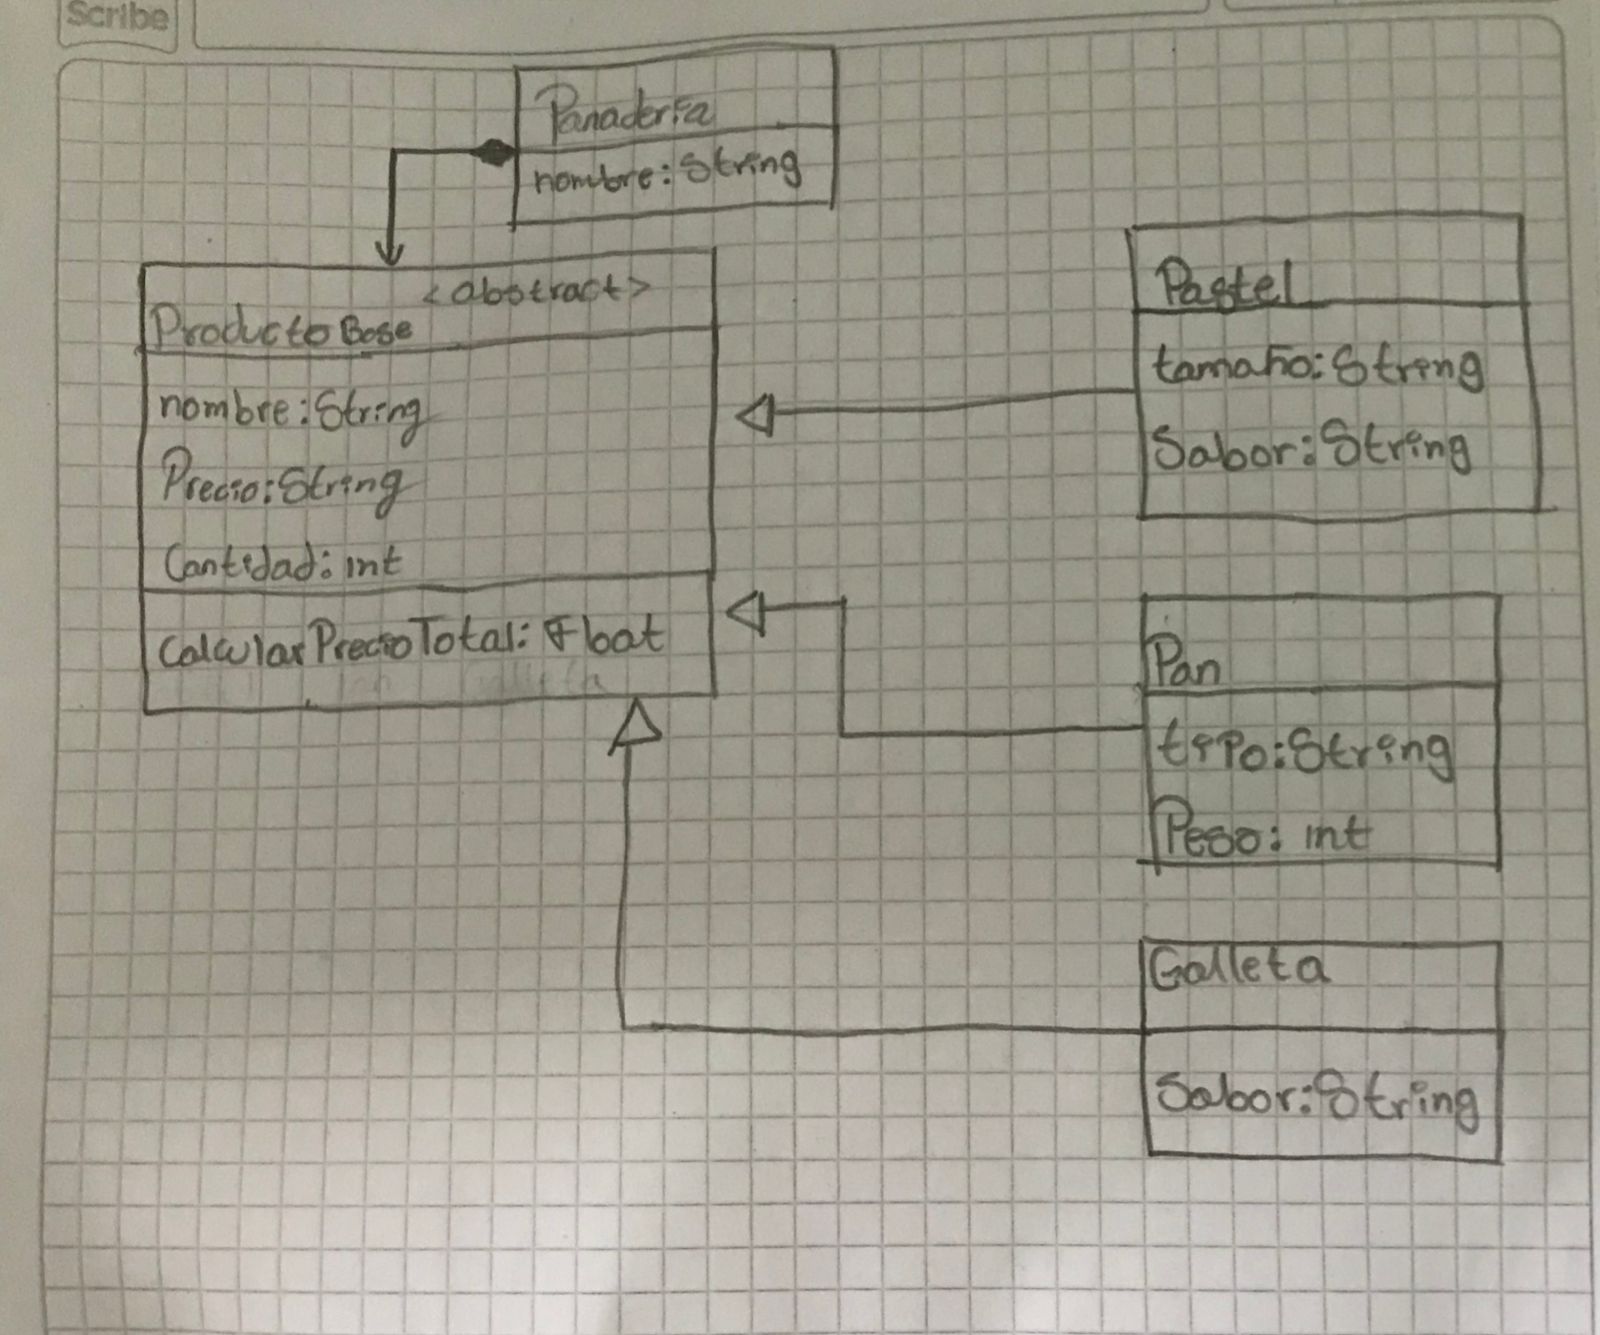 Scribe
Panadería
nombre: String
<abstract>
Producto Base
nombre: String
Precio: String
Cantidad: int
CalcularPrecioTotal: Float
Pastel
tamaño: String
Sabor: String
Pan
tipo: String
Peso: int
Galleta
Sabor: String